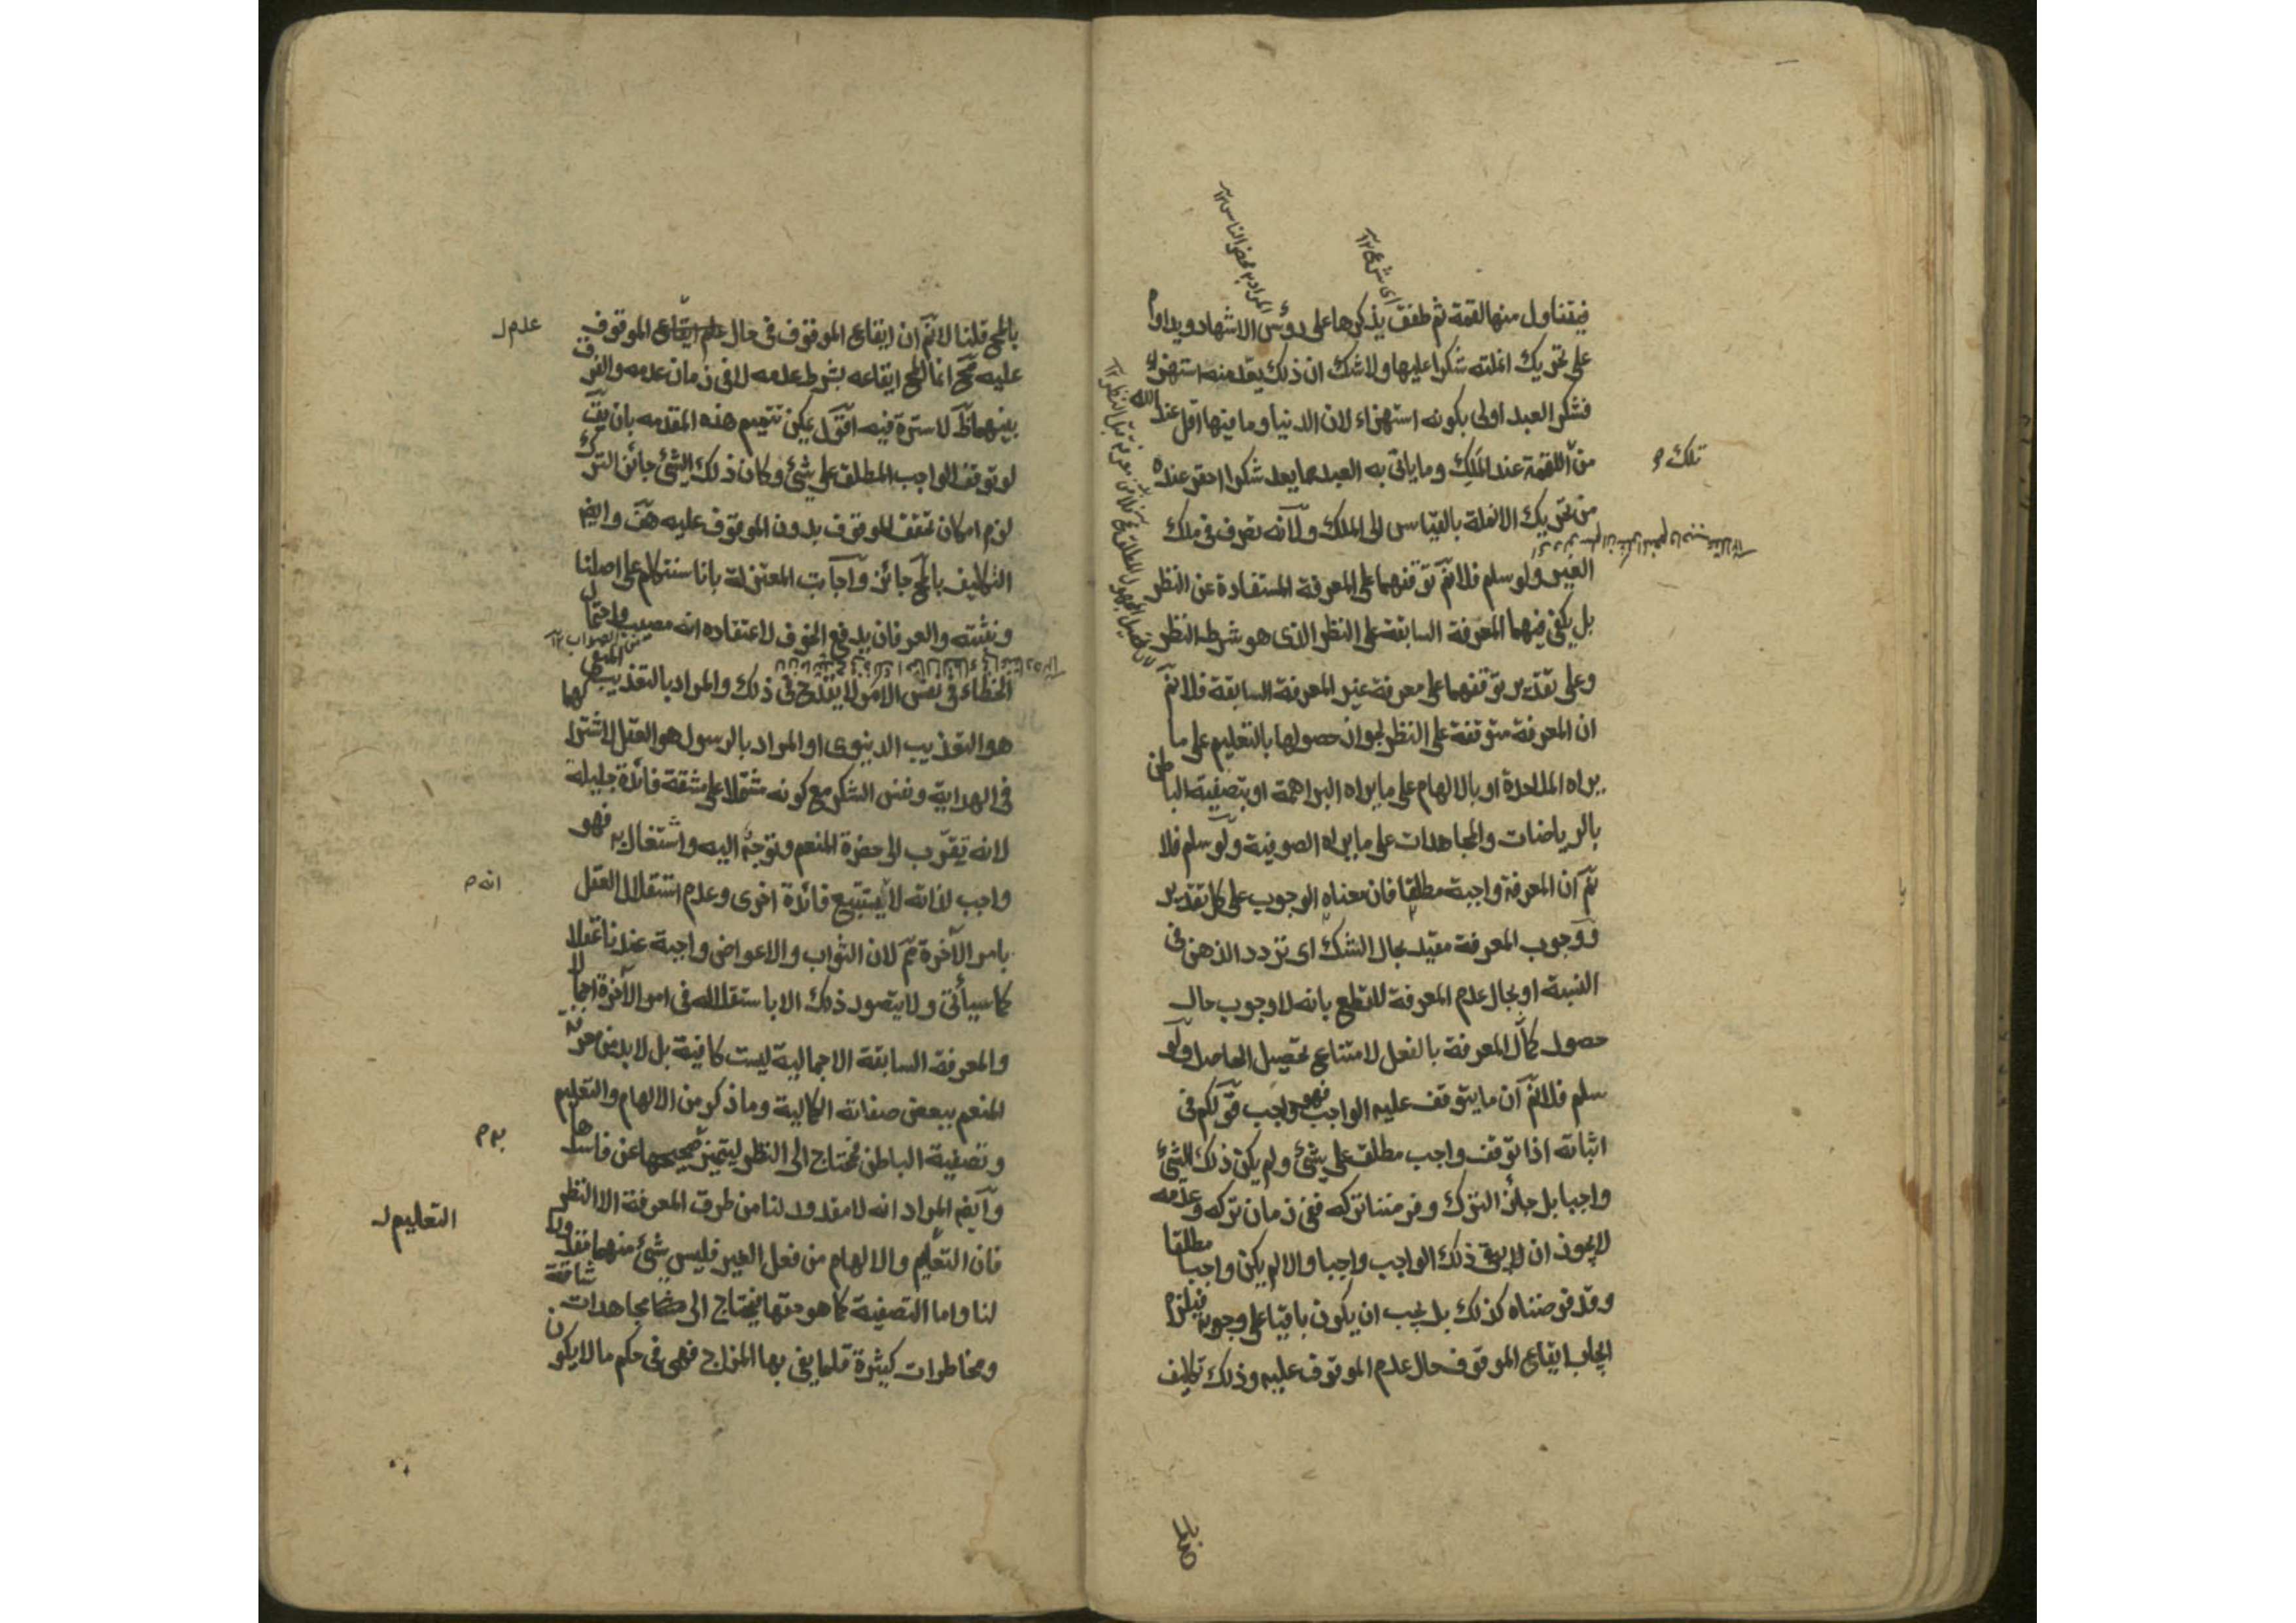 فيتناول منها لقمة ثم طفق يذكرها على رؤس الاشهاد ويداوم
على تحريك انملته شكرا عليها ولا شك ان ذلك يعد منه استهزاء
فشكر العبد اولى بكونه استهزاء لان الدنيا وما فيها اقل عند الله
من اللقمة عند الملك وما ياتى به العبد مما يعد شكرا احقر عنده
من تحريك الانملة بالقياس الى الملك ولانه تصرف فى ملك
الغير ولو سلم فلا نم توقفهما على المعرفة المستفادة عن النظر
بل يكفى فيهما المعرفة السابقة على النظر الذى هو شرط النظر
وعلى تقدير توقفهما على معرفة غير المعرفة السابقة فلا نم
ان المعرفة متوقفة على النظر لجواز حصولها بالتعليم على ما
يراه الملاحدة او بالالهام على ما يراه البراهمة او بتصفية الباطن
بالرياضات والمجاهدات على ما يراه الصوفية ولو سلم فلا
نم ان المعرفة واجبة مطلقا فان معناه الوجوب على كل تقدير
ووجوب المعرفة مقيد بحال الشك اى تردد الذهن فى
النسبة او بحال عدم المعرفة للقطع بانه لا وجوب حال
حصول كمال المعرفة بالفعل لامتناع تحصيل الحاصل ولو
سلم فلا نم ان ما يتوقف عليه الواجب فهو واجب قولكم فى
اثباته اذا توقف واجب مطلق على شئ ولم يكن ذلك الشئ
واجبا بل جائز الترك وفرضنا تركه ففى زمان تركه وعدمه
لا يجوز ان لا يبقى ذلك الواجب واجبا والا لم يكن واجبا مطلقا
وقد فرضناه كذلك بل يجب ان يكون باقيا على وجوبه فيلزم
ايجاب ايقاع الموقوف حال عدم الموقوف عليه وذلك تكليف
تلك
المراد به محض الناس ١٢
بالمح قلنا لا نم ان ايقاع الموقوف فى حال علم ايقاع الموقوف
عليه مح انما المح ايقاعه بشرط عدمه لا فى زمان عدمه والفرق
بينهما ظ لا سترة فيه اقول يمكن تتميم هذه المقدمه بان يق
لو توقف الواجب المطلق على شئ وكان ذلك الشئ جائز الترك
لزم امكان تحقق الموقوف بدون الموقوف عليه هف وايض
التكليف بالمح جائز واجاب المعتزلة بانا سنتكلم على اصلنا
ونثبته والعرفان يدفع الخوف لاعتقاده انه مصيب واحتمال
الخطاء فى نفس الامر لا يقدح فى ذلك والمراد بالتعذيب المنفى
هو التعذيب الدنيوى او المراد بالرسول هو العقل لاشتراكهما
فى الهداية ونفس الشكر مع كونه مشتملا على مشقة فائدة جليلة
لانه تقرب الى حضرة المنعم وتوجه اليه واشتغال به فهو
واجب لذاته لا يستتبع فائدة اخرى وعدم استقلال العقل
بامر الآخرة نم لان الثواب والاعواض واجبة عندنا عقلا
كما سيأتى ولا يتصور ذلك الا باستقلاله فى امر الآخرة اجمالا
والمعرفة السابقة الاجمالية ليست كافية بل لا بد من معرفة
المنعم ببعض صفاته الكمالية وما ذكر من الالهام والتعليم
وتصفية الباطن محتاج الى النظر ليتميز صحيحها عن فاسدها
وايض المراد انه لا مقدور لنا من طرق المعرفة الا النظر
فان التعليم والالهام من فعل الغير فليس شئ منهما مقدورا
لنا واما التصفية كما هو حقها فيحتاج الى مجاهدات شاقة
ومخاطرات كثيرة قلما يفى بها المزاج فهى فى حكم ما لا يكون
عدم ل
انه م
به م
التعليم ل